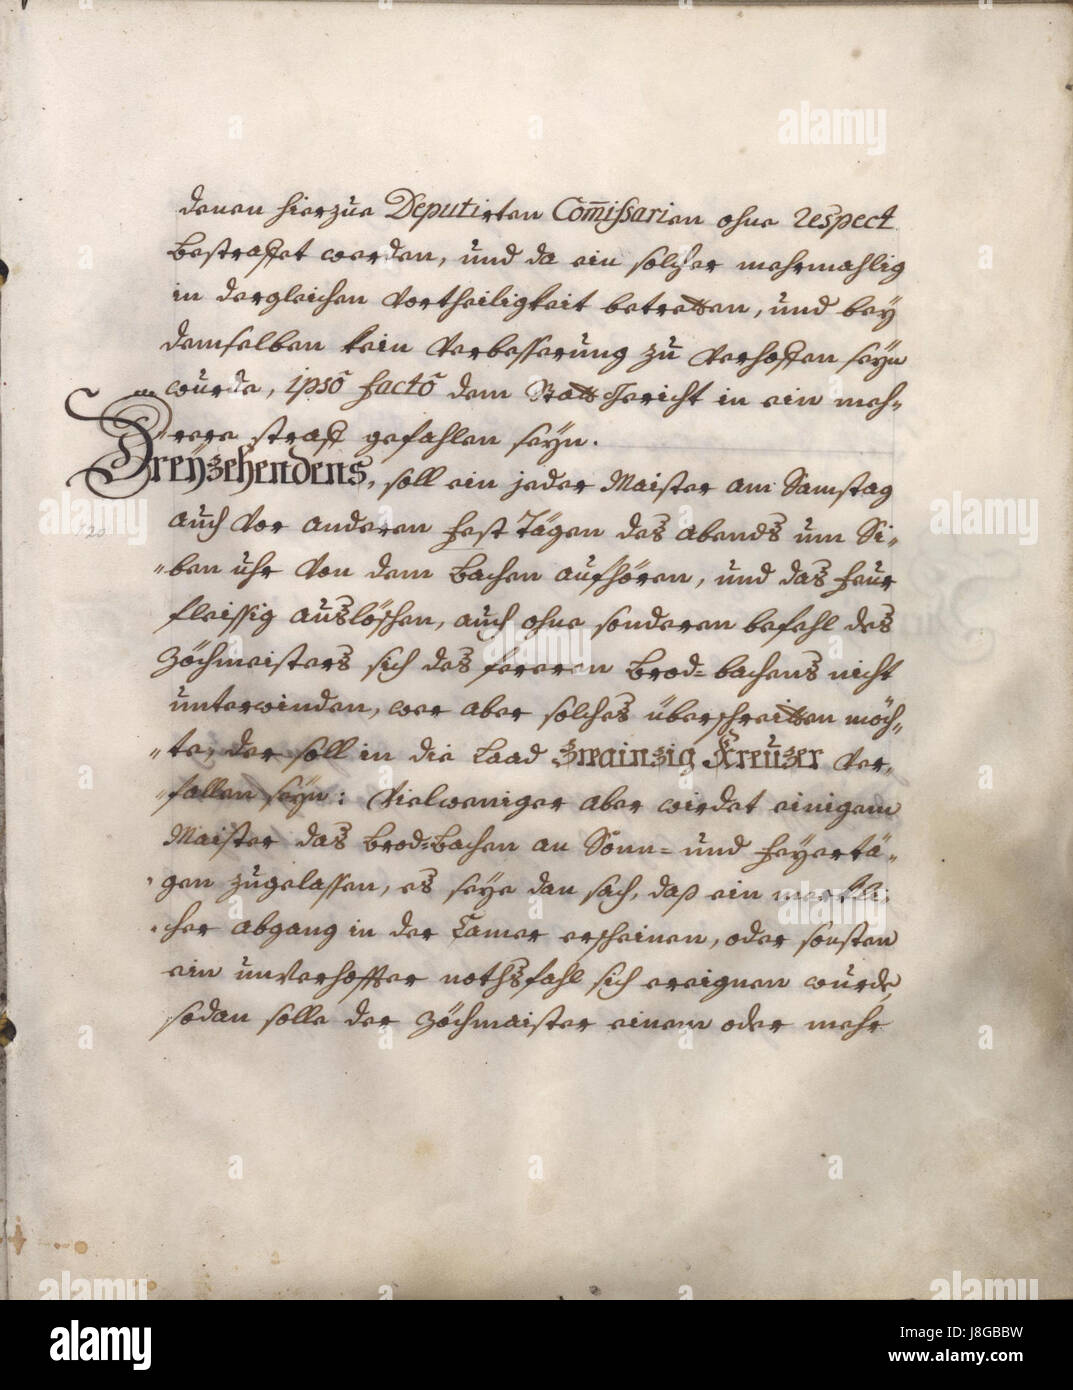 denen hierzue Deputirten Com̄issarien ohne respect
bestraffet werden, und da ein solcher mehrmahlig
in dergleichen Vortheiligkeit betretten, und bey
demselben kein Verbesserung zu verhoffen seyn
wurde, ipsō factō dem Statt Gericht in ein meh„
„rere straff gefahlen seyn.
Dreyzehendens, soll ein jeder Maister am Samstag
auch Vor anderen Fest Tägen des abends um Si„
„ben uhr Von dem bachen aufhören, und das Feur
fleissig auslöschen, auch ohne sonderen befehl des
Zöchmeisters sich des fereren Brod= bachens nicht
unterwinden, wer aber solches überschreitten möch„
„te, der soll in die Laad Zwainzig Kreüzer Ver„
„fallen seyn: Vielweniger aber wirdet einigem
Maister das Brod=bachen an Sonn= und Feyertä„
gen zugelassen, es seye dan sach, daß ein merkli„
cher abgang in der Camer erscheinen, oder sonsten
ein unverhoffter nothsfahl sich ereignen wurde,
sodan solle der Zöchmaister einem oder mehr
120
alamy
Image ID: J8GBBW
www.alamy.com